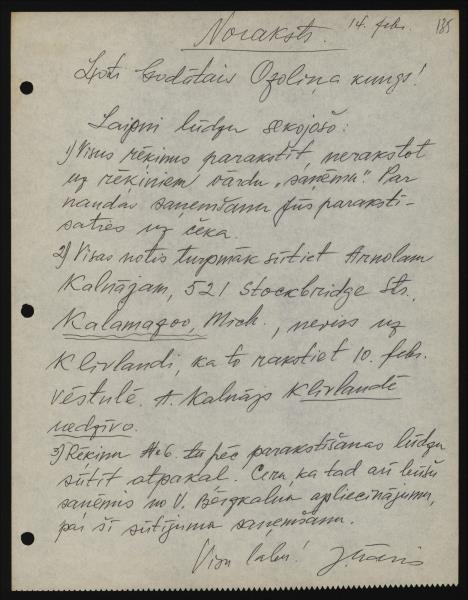 Noraksts. 14. febr. 185
Ļoti Godātais Ozoliņa kungs!
Laipni lūdzu sekojošo:
1) Visus rēķinus parakstīt, nerakstot
uz rēķiniem vārdu „saņēmu". Par
naudas saņemšanu Jūs paraksti-
saties uz čeka.
2) Visas notis turpmāk sūtiet Arnolam
Kalnājam, 521 Stockbridge Str.,
Kalamazoo, Mich., neviss uz
Klīvlandi, ka to rakstiet 10. febr.
vēstulē. A. Kalnājs Klīvlandē
nedzīvo.
3) Rēķinu №6. pēc parakstīšanas lūdzu
sūtīt atpakaļ. Ceru, ka tad arī būšu
saņēmis no V. Bērzkalna apliecinājumu,
par šī sūtījuma saņemšanu.
Visu labu!